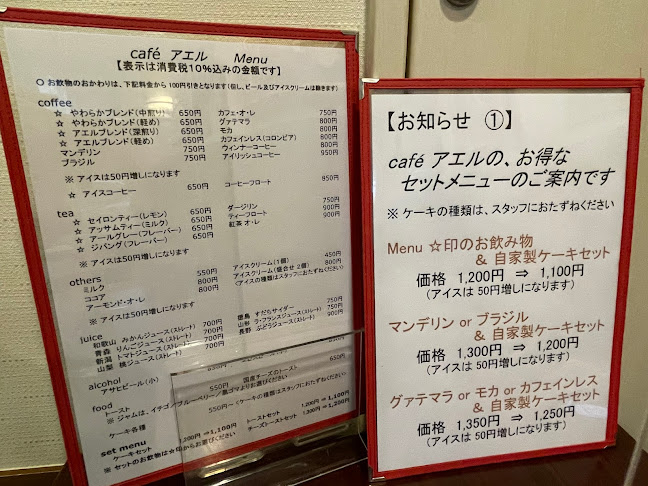 café アエル Menu
【表示は消費税10%込みの金額です】
○ お飲物のおかわりは、下記料金から 100円引きとなります(但し、ビール及びアイスクリームは除きます)
coffee
☆ やわらかブレンド(中煎り) 650円 カフェ・オ・レ 750円
☆ やわらかブレンド(軽め) 650円 グァテマラ 800円
☆ アエルブレンド(深煎り) 650円 モカ 800円
☆ アエルブレンド(軽め) 650円 カフェインレス(コロンビア) 800円
マンデリン 750円 ウィンナーコーヒー 800円
ブラジル 750円 アイリッシュコーヒー 950円
※ アイスは50円増しになります
☆ アイスコーヒー 650円 コーヒーフロート 850円
tea
☆ セイロンティー(レモン) 650円 ダージリン 750円
☆ アッサムティー(ミルク) 650円 ティーフロート 900円
☆ アールグレー(フレーバー) 650円 紅茶 オ・レ 900円
☆ ジパング(フレーバー) 650円
※ アイスは50円増しになります
others
ミルク 550円 アイスクリーム(1個) 450円
ココア 800円 アイスクリーム(盛合せ 2個) 800円
アーモンド・オ・レ 800円 (アイスの種類はスタッフにおたずねください)
※ アイスは50円増しになります
juice
和歌山 みかんジュース(ストレート) 700円 徳島 すだちサイダー 750円
青森 りんごジュース(ストレート) 700円 山形 ラ・フランスジュース(ストレート) 750円
新潟 トマトジュース(ストレート) 700円 長野 ぶどうジュース(ストレート) 900円
山梨 桃ジュース(ストレート) 700円
alcohol
アサヒビール(小)
food
トースト 550円 国産チーズのトースト 650円
※ ジャムは、イチゴ/ブルーベリー/黒ゴマよりお選びください
ケーキ各種 550円~(ケーキの種類はスタッフにおたずねください)
set menu
ケーキセット 1,200円⇒1,100円 トーストセット 1,200円⇒1,100円
チーズトーストセット 1,300円⇒1,200円
※ セットのお飲物は☆印からお選びください
【お知らせ ①】
café アエルの、お得な
セットメニューのご案内です
※ ケーキの種類は、スタッフにおたずねください
Menu ☆印のお飲み物
& 自家製ケーキセット
価格 1,200円 ⇒ 1,100円
(アイスは 50円増しになります)
マンデリン or ブラジル
& 自家製ケーキセット
価格 1,300円 ⇒ 1,200円
(アイスは 50円増しになります)
グァテマラ or モカ or カフェインレス
& 自家製ケーキセット
価格 1,350円 ⇒ 1,250円
(アイスは 50円増しになります)